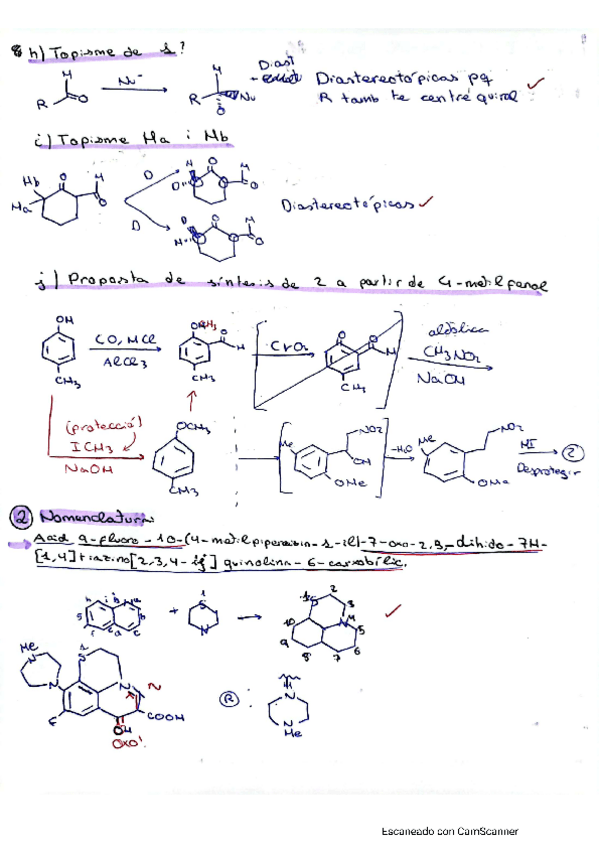 8 h) Topisme de 1?
H
R
O
Nu⁻
H
R
Nu
O
Diast
Diastereotópicas pq
R tamb te centre quiral
i) Topisme Ha i Hb
Hb
Ha
O
H
O
D
D
H
O
H
D
O
D
O
H
H
O
Diastereotópicas
j) Proposta de síntesis de 2 a partir de 4-metilfenol
OH
CH3
CO, HCl
AlCl3
OCH3
O
H
CH3
CrO3
O
O
H
CH3
aldólica
CH3NO2
NaOH
(protecció)
ICH3
NaOH
OCH3
CH3
Me
NO2
OH
OMe
-H2O
Me
NO2
OMe
HI
Desprotegir
2
2 Nomenclatura
Acid 9-fluoro-10-(4-metilpiperazin-1-il)-7-oxo-2,3-dihido-7H-
[1,4]tiazino[2,3,4-ij] quinolina-6-carboxílic.
+
S
N
1
S
2
3
N
4
5
6
7
8
9
10
Me
N
N
S
N
N
F
COOH
OH
oxo!
R :
N
N
Me
Escaneado con CamScanner